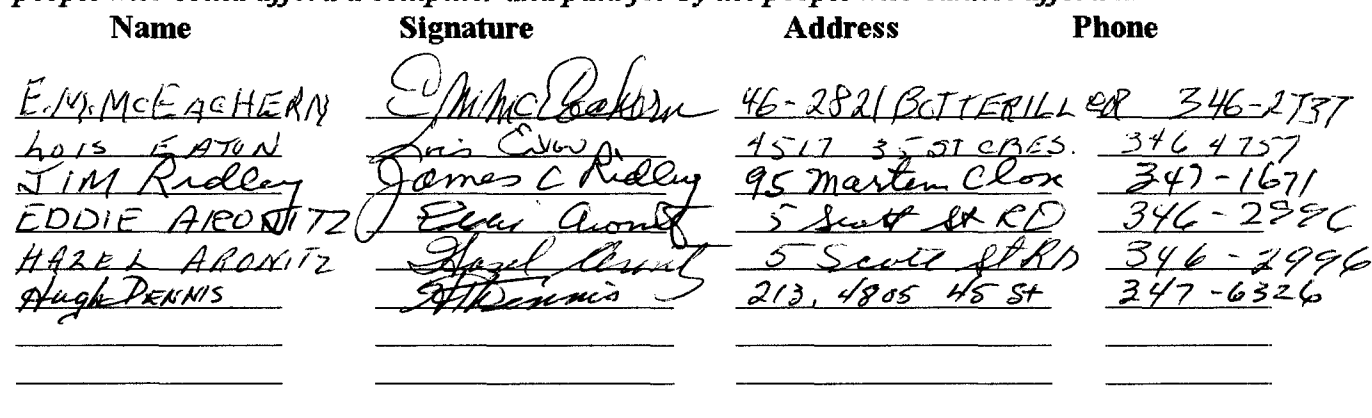 people who could afford a computer and paid for by the people who cannot afford
Name Signature Address Phone
E.M. MCEACHERN E M McEachern 46-2821 BOTTERILL CR 346-2737
LOIS EATON Lois Eaton 4517 35 ST CRES. 346 4757
JIM Ridley James C Ridley 95 Martin Close 347-1671
EDDIE ARONITZ Eddie Aronitz 5 Scott St RD 346-2996
HAZEL ARONITZ Hazel Aronitz 5 Scott St RD 346-2996
Hugh DENNIS H Dennis 213, 4805 45 St 347-6326